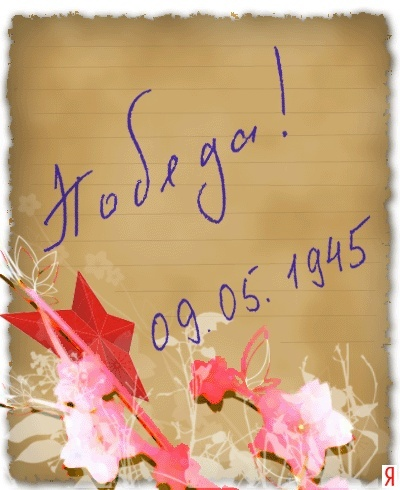 Победа!
09.05.1945
Я